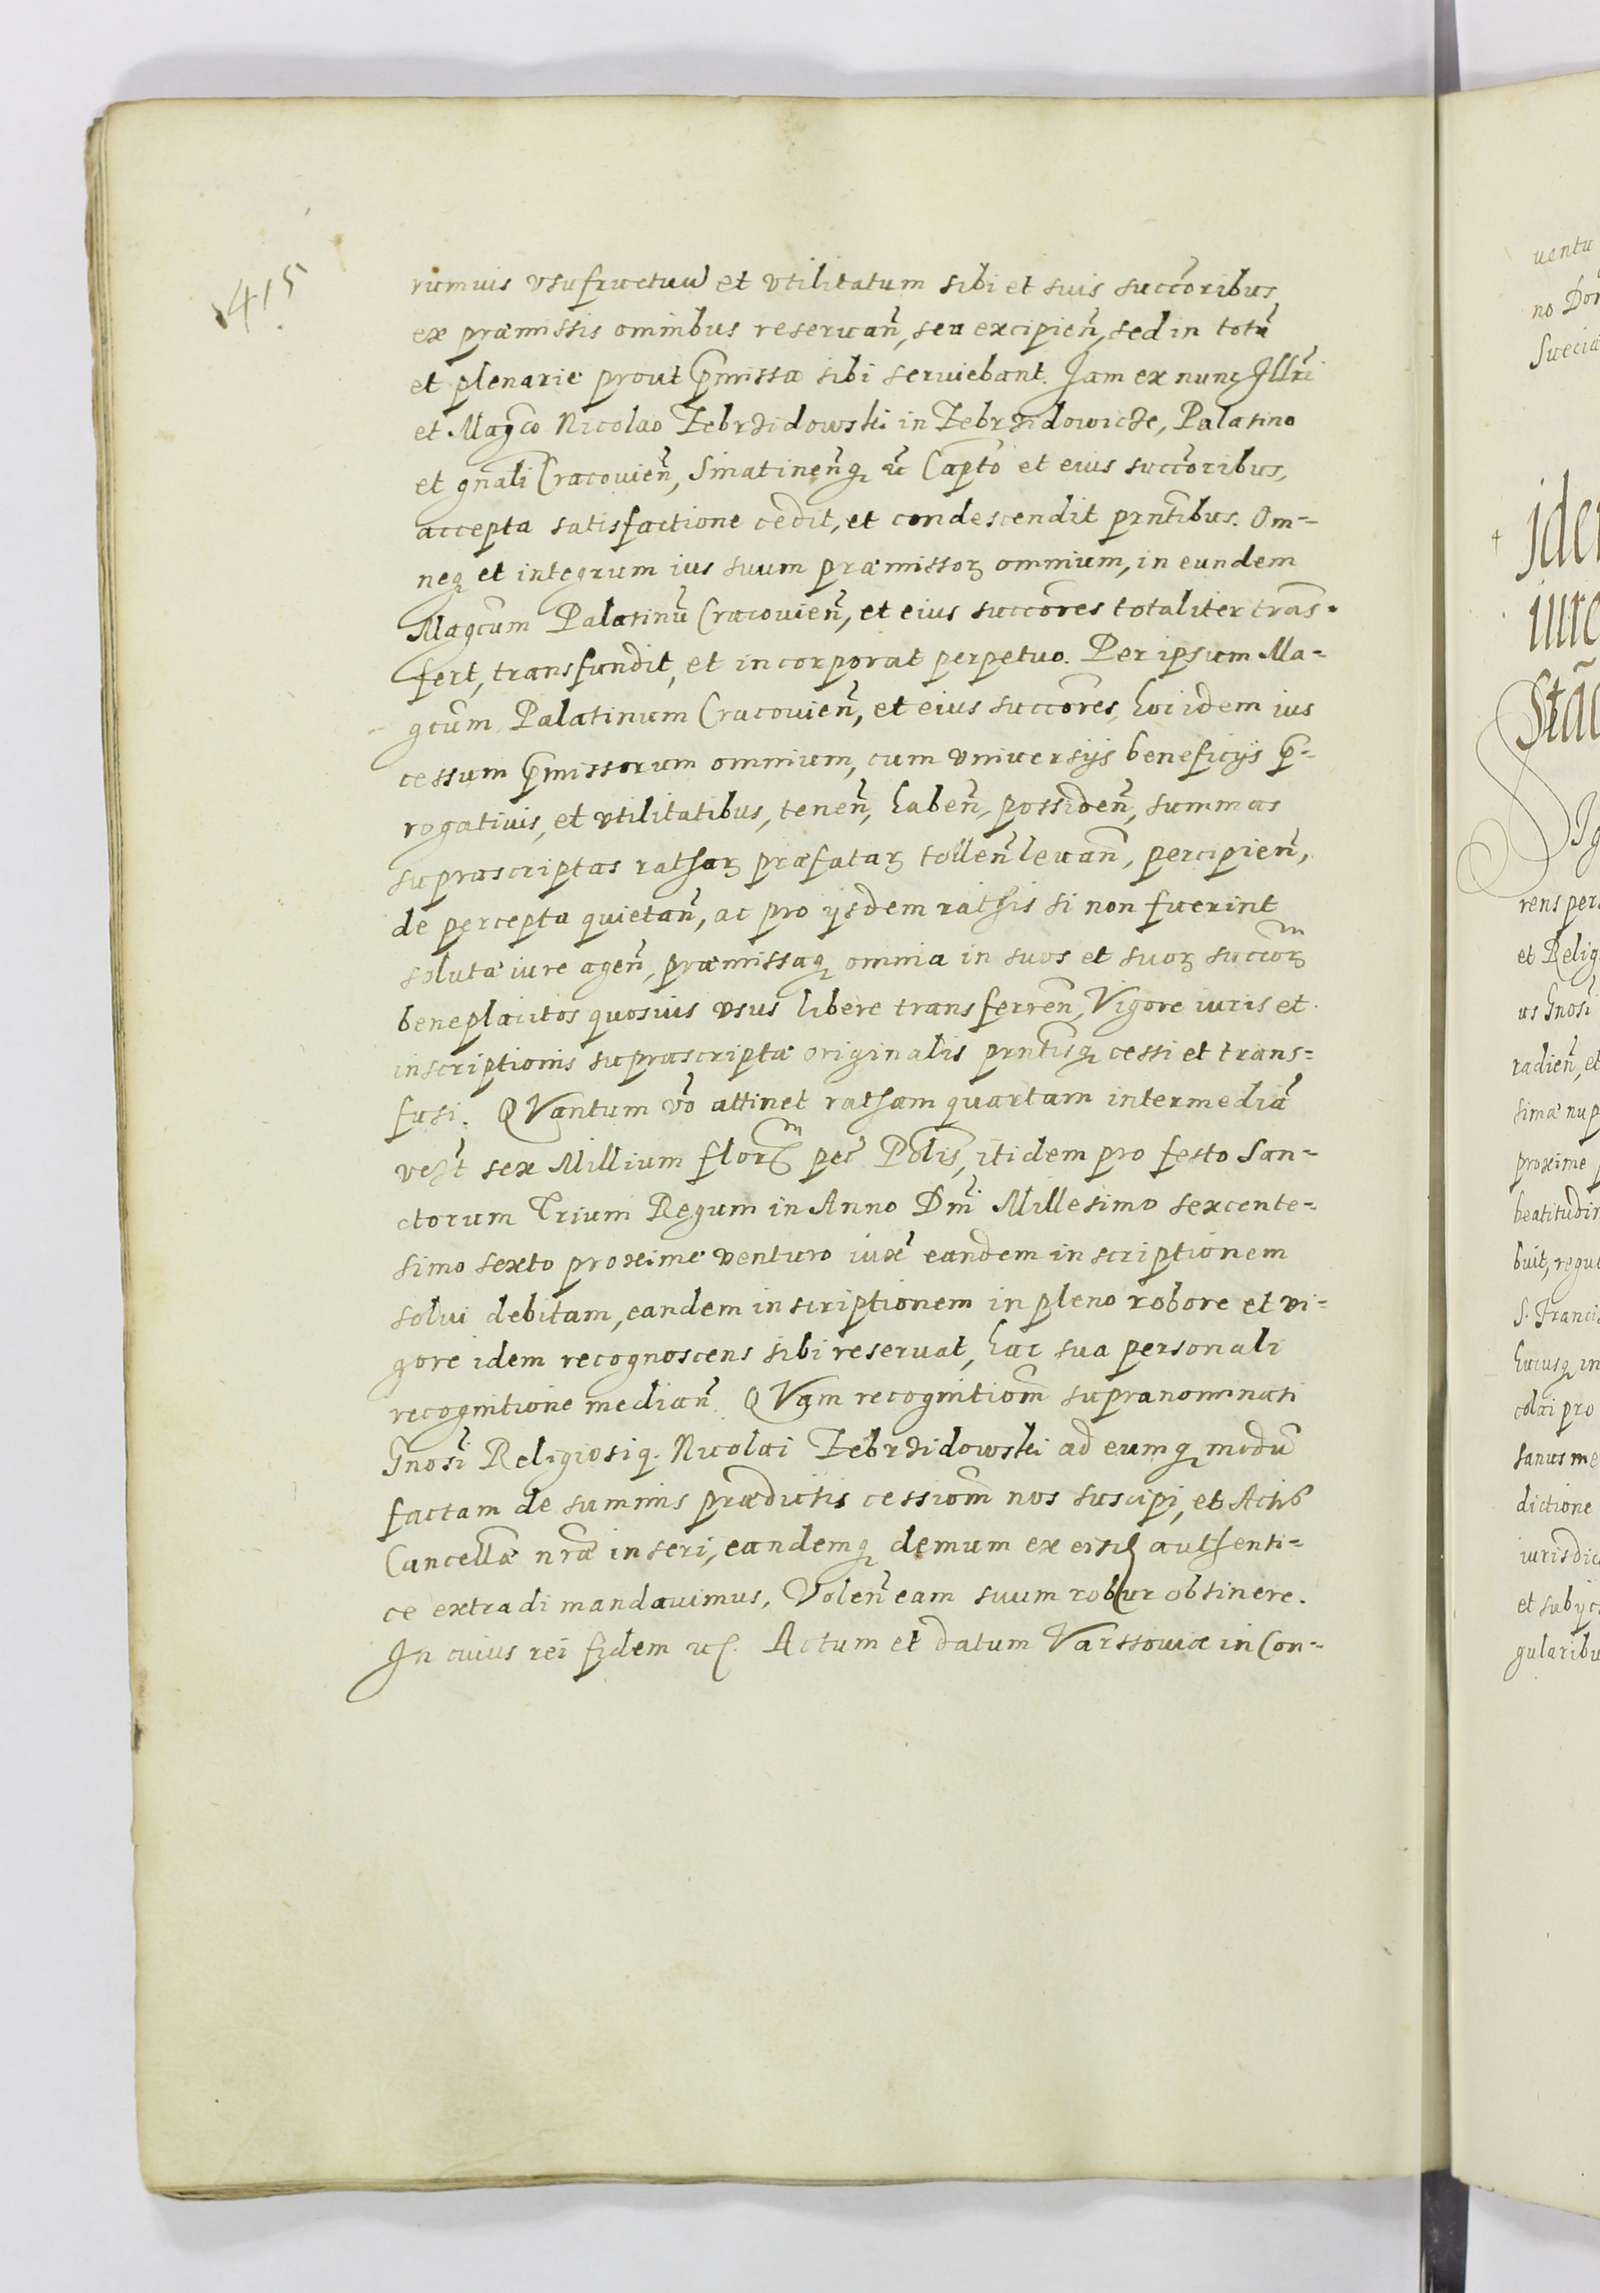 415
rumuis vsufructuū et vtilitatum sibi et suis succ̃oribus
ex præmissis omnibus reseruañ, seu excipieñ, sed in totũ
et plenarie prout p̃missa sibi seruiebant. Jam ex nunc Jllr̃i
et Magc̃o Nicolao Zebrzidowski in Zebrzidowicze, Palatino
et gñali Cracouieñ, Sniatineñq; ꝛc̃ Capt̃o et eius succ̃oribus,
accepta satisfactione cedit, et condescendit prñtibus. Om=
neq; et integrum ius suum præmissoꝝ omnium, in eundem
Magc̃um Palatinũ Cracouieñ, et eius succ̃ores totaliter trãs=
fert, transfundit, et incorporat perpetuo. Per ipsum Ma=
gc̃um Palatinum Cracouieñ, et eius succ̃ores, hoc idem ius
cessum p̃missorum omnium, cum vniuersijs beneficijs p̃=
rogatiuis, et vtilitatibus, teneñ, habeñ, possideñ, summas
suprascriptas rathaꝝ præfataꝝ tolleñ leuañ, percipieñ,
de percepta quietañ, ac pro ijsdem rathis si non fuerint
solutæ iure ageñ, præmissaq; omnia in suos et suoꝝ succ̃oꝝ
beneplacitos quosuis vsus libere transferreñ, Vigore iuris et
inscriptionis suprascriptæ originalis prñtisq; cessi et trans=
fusi. QVantum ṽo attinet ratham quartam intermediã
vezt sex Millium flor̃ pec̃ Pol̃is, itidem pro festo San=
ctorum Trium Regum in Anno Dñi Millesimo sexcente=
simo sexto proxime venturo iux̃ eandem inscriptionem
solui debitam, eandem inscriptionem in pleno robore et vi=
gore idem recognoscens sibi reseruat, hac sua personali
recognitione mediañ. QVam recognitioñm supranominati
Gñosi Religiosiq; Nicolai Zebrzidowski ad eumq; modũ
factam de summis prædictis cessioñm nos suscipi, et Actis
Cancellæ nr̃æ inseri, eandemq; demum ex eisd authenti=
ce extradi mandauimus, Voleñ eam suum robur obtinere.
In cuius rei fidem ꝛc. Actum et datum Varssouiæ in Con=
uentu
no Do
Sueciæ
Jde
iure
Stã
rens per
et Relig
us Gnosi
radieñ, et
simæ nup
proxime
beatitudin
buit, regu
S. Franci
huiusq; in
colai pro
sanus me
dictione
iurisdic
et subijc
gularibu